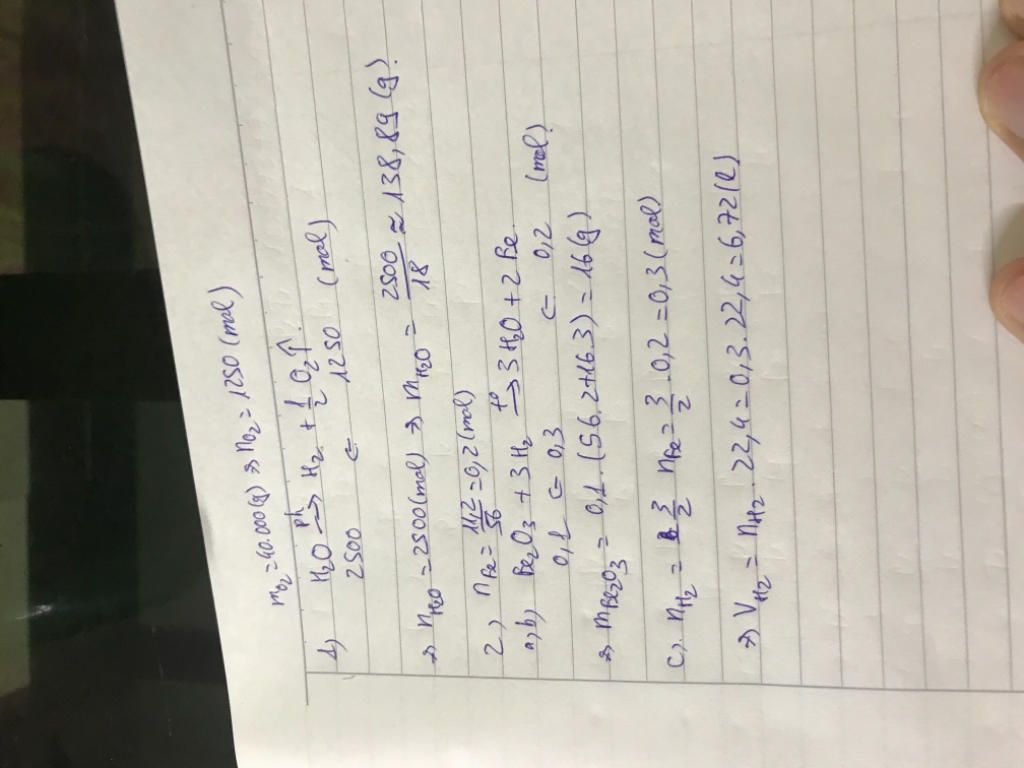 mO2 = 40.000(g) => nO2 = 1250 (mol)
1) H2O —đp→ H2 + 1/2 O2↑
2500 ← 1250 (mol)
=> nH2O = 2500(mol) => mH2O = 2500/18 ≈ 138,89 (g).
2, nFe = 11,2/56 = 0,2(mol)
a,b) Fe2O3 + 3H2 —to→ 3H2O + 2Fe
0,1 ← 0,3 ← 0,2 (mol)
=> mFe2O3 = 0,1.(56.2+16.3) = 16(g)
c). nH2 = 3/2 nFe = 3/2 . 0,2 = 0,3(mol)
=> VH2 = nH2 . 22,4 = 0,3 . 22,4 = 6,72(l)